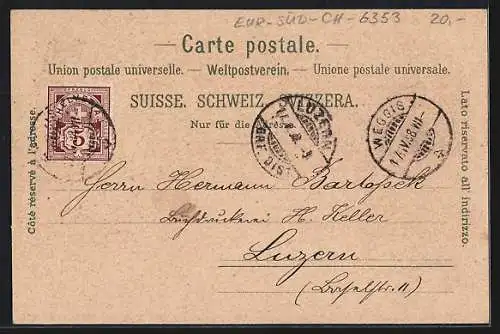 EUR-SÜD-CH-6353 20,-
Carte postale.
Union postale universelle. — Weltpostverein. — Unione postale universale.
SUISSE. SCHWEIZ. SVIZZERA.
Nur für die Adresse.
Côté réservé à l'adresse.
Lato riservato all indirizzo.
5
LUZERN
WEGGIS
Herrn Hermann Bartoschek
Buchdruckerei H. Keller
Luzern
(Baselstr. 11)